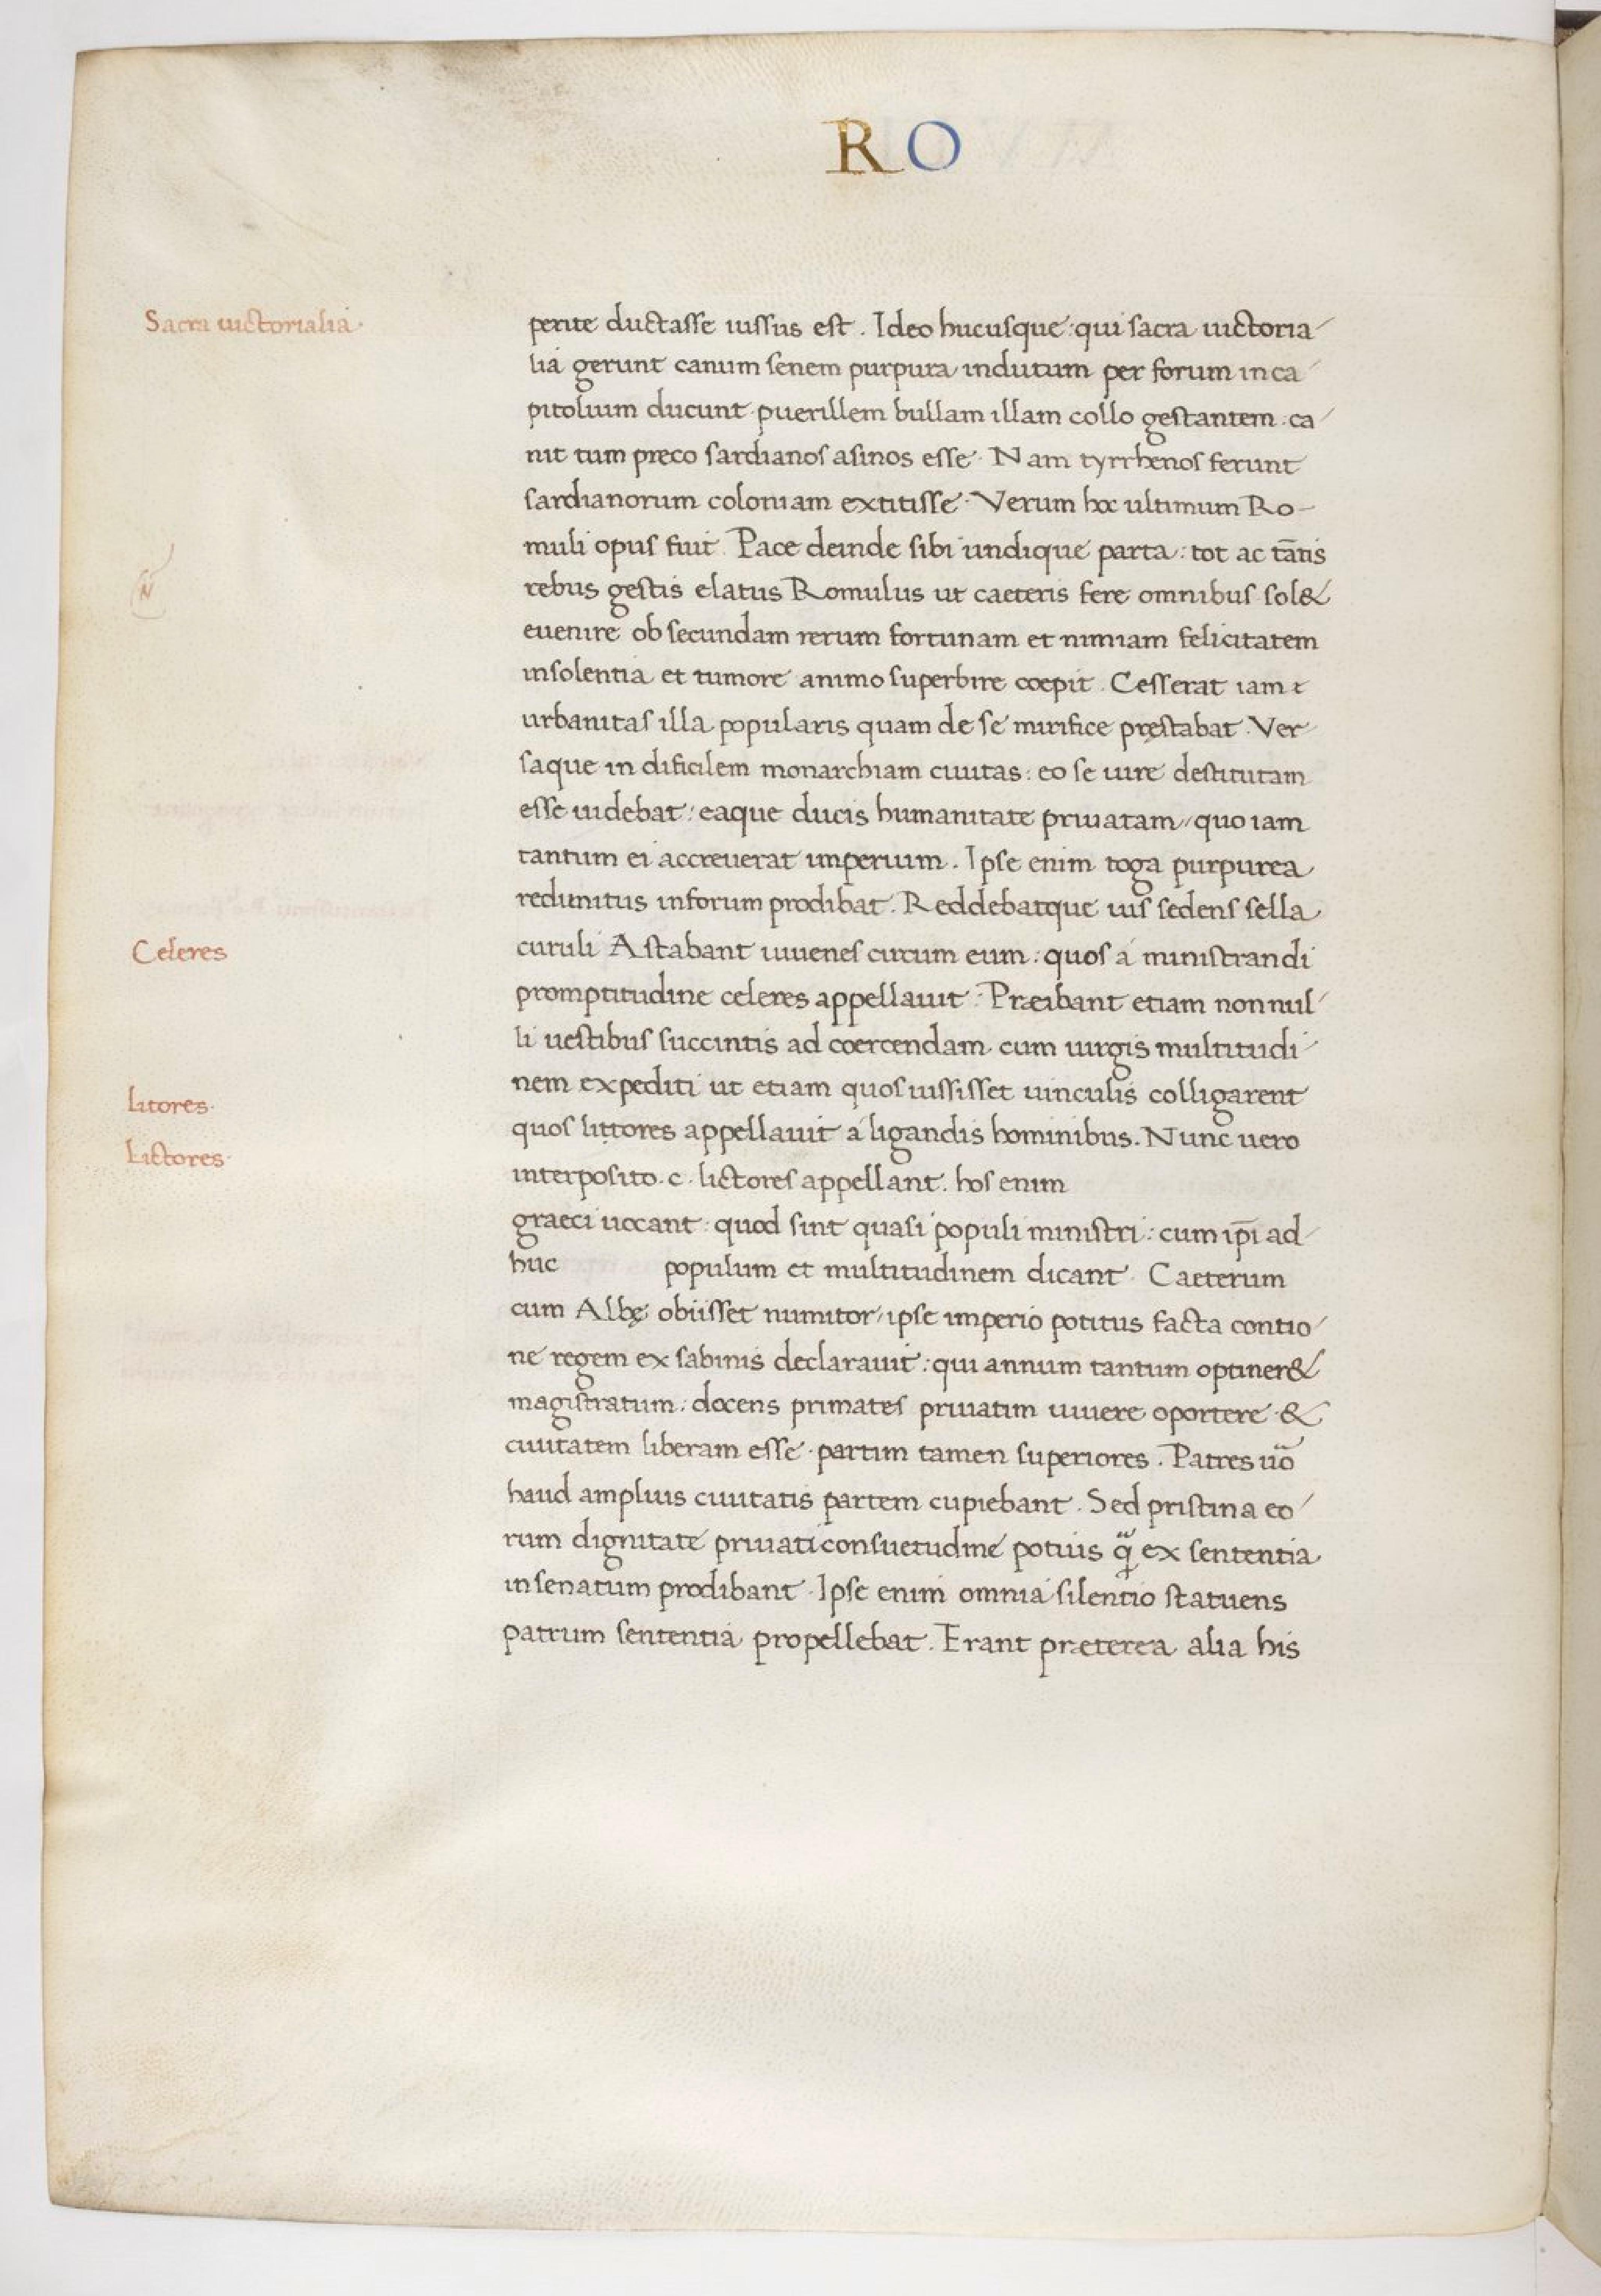 RO
Sacra uictorialia.
perite ductasse iussus est. Ideo hucusque: qui sacra uictoria
lia gerunt canum senem purpura indutum per forum in ca
pitolium ducunt. puerillem bullam illam collo gestantem. ca
nit tum preco sardianos asinos esse. Nam tyrrhenos ferunt
sardianorum coloniam extitisse. Verum hoc ultimum Ro-
muli opus fuit. Pace deinde sibi undique parta: tot ac tātis
rebus gestis elatus Romulus ut caeteris fere omnibus sol&
euenire ob secundam rerum fortunam et nimiam felicitatem
insolentia et tumore animo superbire coepit. Cesserat iam
urbanitas illa popularis quam de se mirifice pręstabat. Ver
saque in dificilem monarchiam ciuitas: eo se iure destitutam
esse uidebat: eaque ducis humanitate priuatam, quo iam
tantum ei accreuerat imperium. Ipse enim toga purpurea
redimitus in forum prodibat. Reddebatque ius sedens sella
Celeres
curuli Astabant iuuenes circum eum: quos a ministrandi
promptitudine celeres appellauit: Præibant etiam nonnul
li uestibus succintis ad coercendam cum uirgis multitudi
nem expediti ut etiam quos iussisset uinculis colligarent
litores.
quos littores appellauit a ligandis hominibus. Nunc uero
Lictores.
interposito .c. lictores appellant. hos enim
graeci uocant: quod sint quasi populi ministri: cum ip̄i ad
huc populum et multitudinem dicant. Caeterum
cum Albę obiisset numitor, ipse imperio potitus facta contio
ne regem ex sabinis declarauit: qui annum tantum optiner&
magistratum: docens primates priuatim uiuere oportere &
ciuitatem liberam esse. partim tamen superiores. Patres uō
haud amplius ciuitatis partem cupiebant. Sed pristina eo
rum dignitate priuati consuetudine potius q̃ ex sententia
in senatum prodibant. Ipse enim omnia silentio statuens
patrum sententia propellebat. Erant præterea alia his